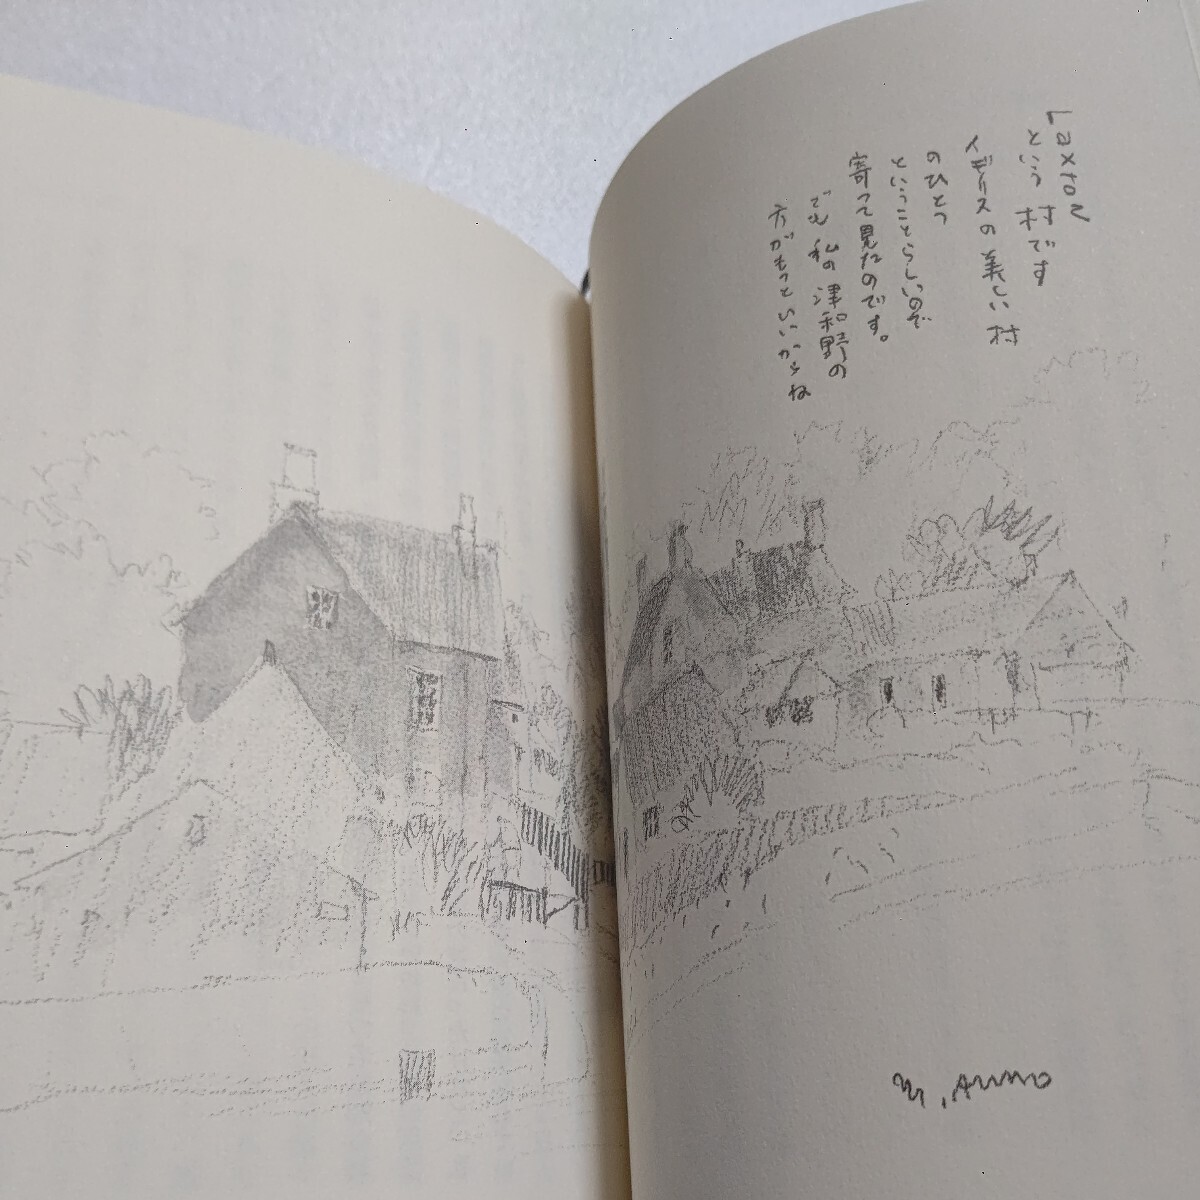 Laxton
という村です
イギリスの美しい村
のひとつ
ということらしいので
寄って見たのです。
でも私の津和野の
方がもっといいからね
M. ANNO